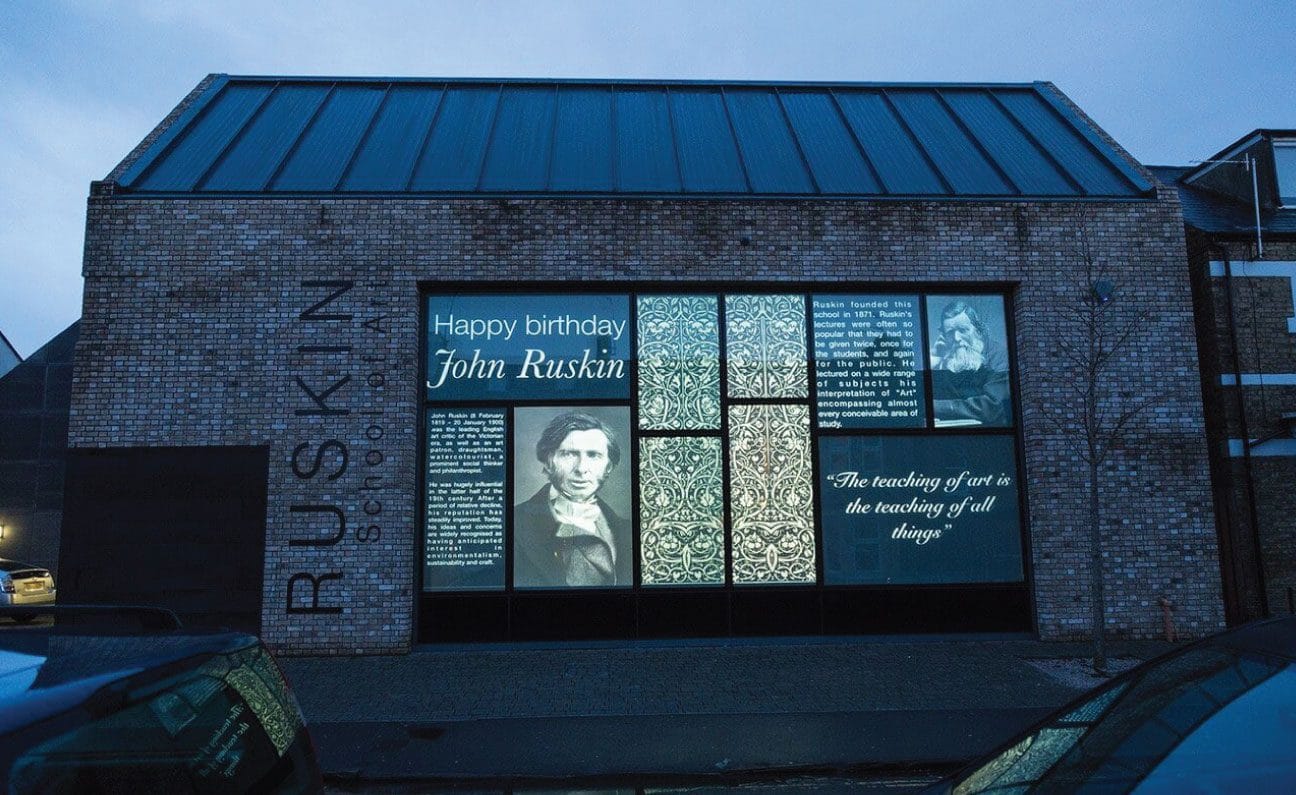 RUSKIN
School of Art
Happy birthday
John Ruskin
John Ruskin (8 February
1819 – 20 January 1900)
was the leading English
art critic of the Victorian
era, as well as an art
patron, draughtsman,
watercolourist, a
prominent social thinker
and philanthropist.
He was hugely influential
in the latter half of the
19th century After a
period of relative decline,
his reputation has
steadily improved. Today,
his ideas and concerns
are widely recognised as
having anticipated
interest in
environmentalism,
sustainability and craft.
Ruskin founded this
school in 1871. Ruskin's
lectures were often so
popular that they had to
be given twice, once for
the students, and again
for the public. He
lectured on a wide range
of subjects his
interpretation of "Art"
encompassing almost
every conceivable area of
study.
“The teaching of art is
the teaching of all
things”